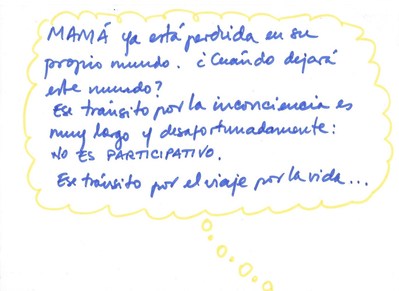 MAMÁ ya está perdida en su
propio mundo. ¿Cuándo dejará
este mundo?
Ese tránsito por la inconciencia es
muy largo y desafortunadamente:
NO ES PARTICIPATIVO.
Ese tránsito por el viaje por la vida...